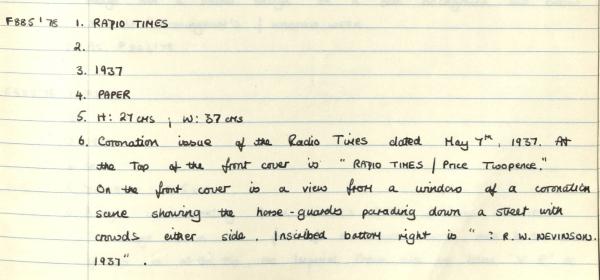 F885'78 1. RADIO TIMES
2.
3. 1937
4. PAPER
5. H: 27 cms ; W: 37 cms
6. Coronation issue of the Radio Times dated May 7th, 1937. At
the Top of the front cover is "RADIO TIMES | Price Twopence."
On the front cover is a view from a window of a coronation
scene showing the horse-guards parading down a street with
crowds either side. Inscribed bottom right is " : R. W. NEVINSON.
1937" .